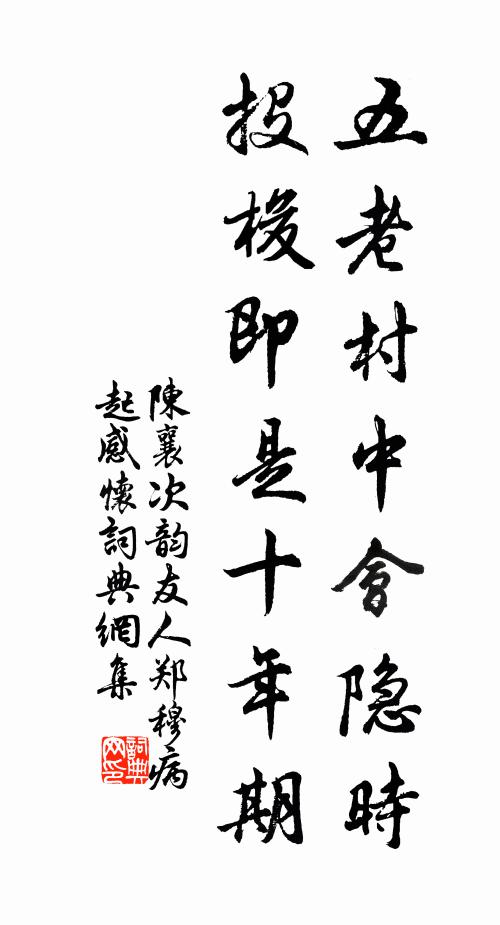 五老村中會隐時
投梭即是十年期
陳襄次韵友人郑穆病
起感懷詞典網集
詞典
网印